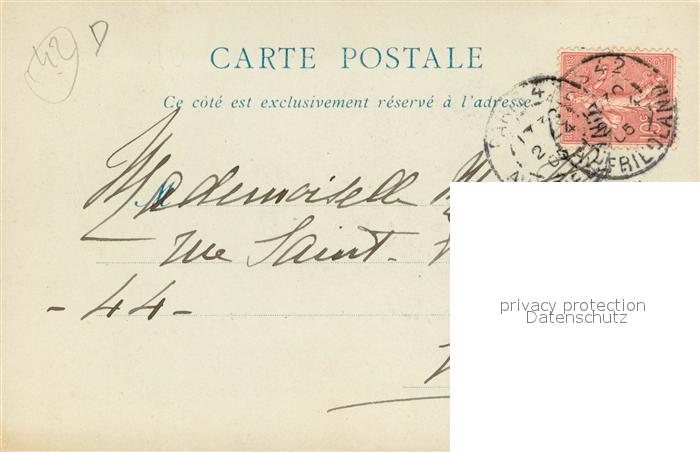 42 D
CARTE POSTALE
Ce côté est exclusivement réservé à l'adresse.
Mademoiselle
rue Saint-
- 44 -
privacy protection
Datenschutz